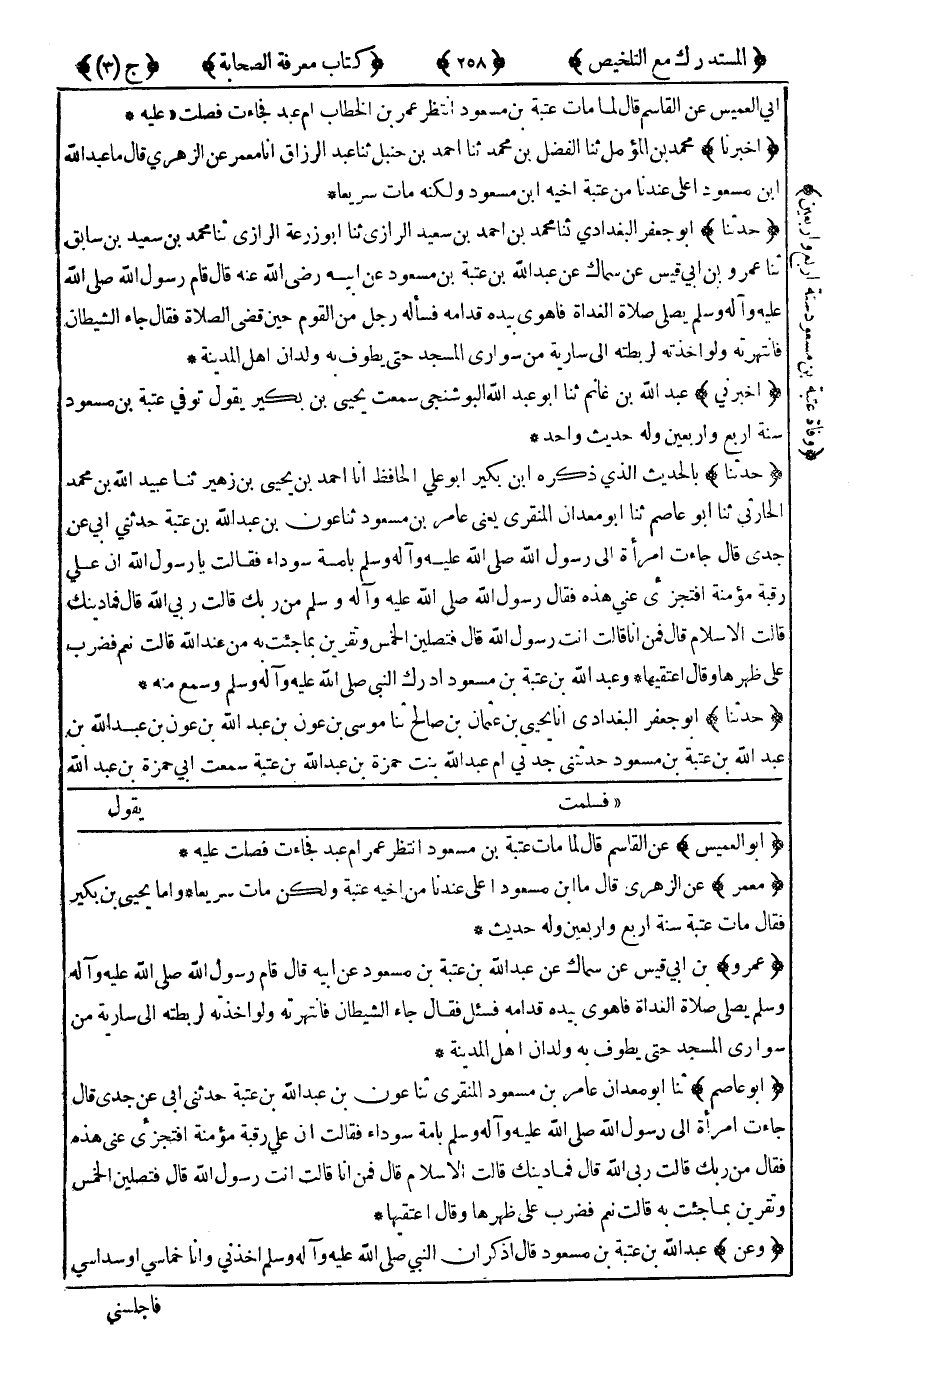 ﴿ المستدرك مع التلخيص ﴾ ﴿ ٢٥٨ ﴾ ﴿ كتاب معرفة الصحابة ﴾ ﴿ ج (٣) ﴾
ابي العميس عن القاسم قال لما مات عتبة بن مسعود انتظر عمر بن الخطاب ام عبد فجاءت فصلت « عليه *
﴿ اخبرنا ﴾ محمد بن المؤمل ثنا الفضل بن محمد ثنا احمد بن حنبل ثنا عبد الرزاق انا معمر عن الزهري قال ما عبد الله
ابن مسعود اعلى عندنا من عتبة اخيه ابن مسعود ولكنه مات سريعا *
﴿ حدثنا ﴾ ابو جعفر البغدادي ثنا محمد بن احمد بن سعيد الرازى ثنا ابو زرعة الرازى ثنا محمد بن سعيد بن سابق
ثنا عمرو بن ابي قيس عن سماك عن عبد الله بن عتبة بن مسعود عن ابيه رضى الله عنه قال قام رسول الله صلى الله
عليه وآله وسلم يصلى صلاة الغداة فاهوى بيده قدامه فسأله رجل من القوم حين قضى الصلاة فقال جاء الشيطان
فانتهرته ولو اخذته لربطته الى سارية من سوارى المسجد حتى يطوف به ولدان اهل المدينة *
﴿ اخبرني ﴾ عبد الله بن غانم ثنا ابو عبد الله البوشنجى سمعت يحيى بن بكير يقول توفي عتبة بن مسعود
سنة اربع واربعين وله حديث واحد *
﴿ وفاة عتبة بن مسعود سنة اربع واربعين ﴾
﴿ حدثنا ﴾ بالحديث الذي ذكره ابن بكير ابو علي الحافظ انا احمد بن يحيى بن زهير ثنا عبيد الله بن محمد
الحارثي ثنا ابو عاصم ثنا ابو معدان المنقرى يعنى عامر بن مسعود ثنا عون بن عبد الله بن عتبة حدثني ابي عن
جدى قال جاءت امرأة الى رسول الله صلى الله عليه وآله وسلم بامة سوداء فقالت يا رسول الله ان علي
رقبة مؤمنة افتجزئ عني هذه فقال رسول الله صلى الله عليه وآله وسلم من ربك قالت ربي الله قال فما دينك
قالت الاسلام قال فمن انا قالت انت رسول الله قال فتصلين الخمس وتقرين بما جئت به من عند الله قالت نعم فضرب
على ظهرها وقال اعتقيها * وعبد الله بن عتبة بن مسعود ادرك النبي صلى الله عليه وآله وسلم وسمع منه *
﴿ حدثنا ﴾ ابو جعفر البغدادى انا يحيى بن عثمان بن صالح ثنا موسى بن عون بن عبد الله بن عون بن عبد الله بن
عبد الله بن عتبة بن مسعود حدثتنى جدتي ام عبد الله بنت حمزة بن عبد الله بن عتبة سمعت ابي حمزة بن عبد الله
« فسلمت يقول
﴿ ابو العميس ﴾ عن القاسم قال لما مات عتبة بن مسعود انتظر عمر ام عبد فجاءت فصلت عليه *
﴿ معمر ﴾ عن الزهرى قال ما ابن مسعود اعلى عندنا من اخيه عتبة ولكن مات سريعا * واما يحيى بن بكير
فقال مات عتبة سنة اربع واربعين وله حديث *
﴿ عمرو ﴾ بن ابي قيس عن سماك عن عبد الله بن عتبة بن مسعود عن ابيه قال قام رسول الله صلى الله عليه وآله
وسلم يصلى صلاة الغداة فاهوى بيده قدامه فسئل فقال جاء الشيطان فانتهرته ولو اخذته لربطته الى سارية من
سوارى المسجد حتى يطوف به ولدان اهل المدينة *
﴿ ابو عاصم ﴾ ثنا ابو معدان عامر بن مسعود المنقرى ثنا عون بن عبد الله بن عتبة حدثنى ابى عن جدى قال
جاءت امرأة الى رسول الله صلى الله عليه وآله وسلم بامة سوداء فقالت ان علي رقبة مؤمنة افتجزئ عنى هذه
فقال من ربك قالت ربى الله قال فما دينك قالت الاسلام قال فمن انا قالت انت رسول الله قال فتصلين الخمس
وتقرين بما جئت به قالت نعم فضرب على ظهرها وقال اعتقيها *
﴿ وعن ﴾ عبد الله بن عتبة بن مسعود قال اذكر ان النبي صلى الله عليه وآله وسلم اخذني وانا خماسي او سداسي
فاجلسني